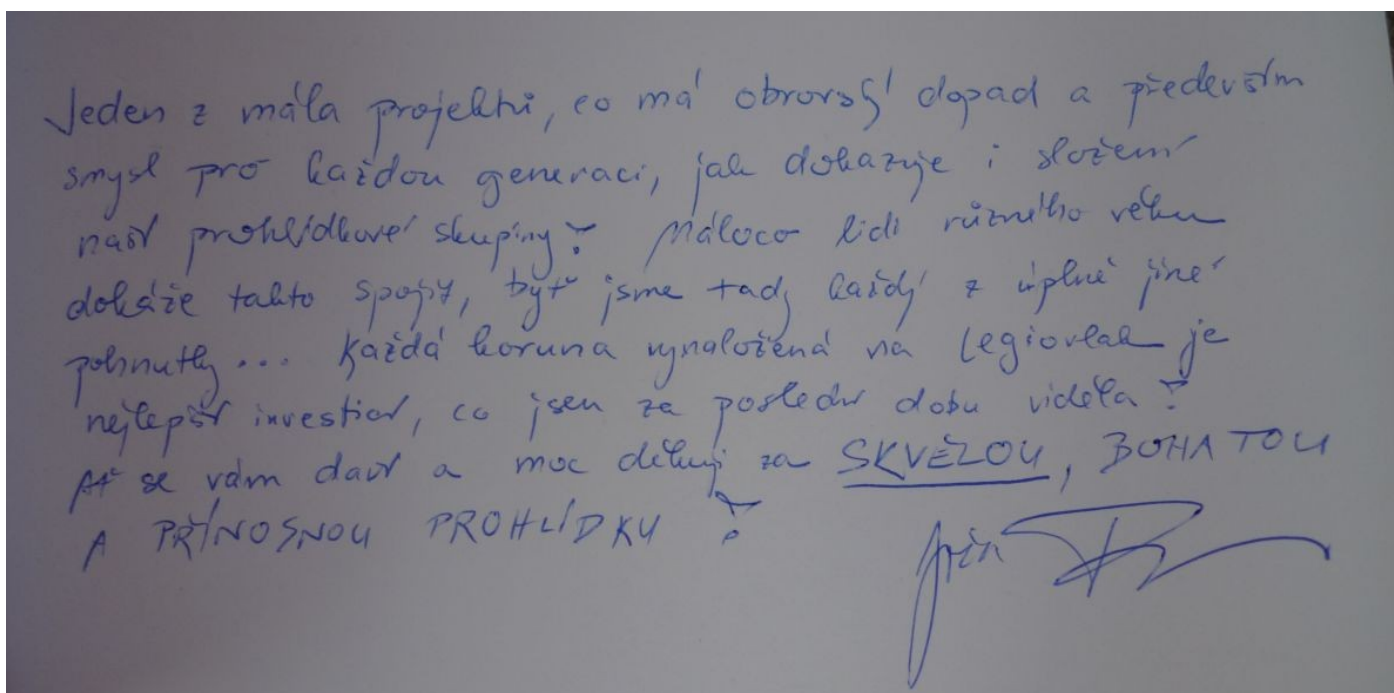 Jeden z mála projektů, co má obrovský dopad a především
smysl pro každou generaci, jak dokazuje i složení
naší prohlídkové skupiny! Máloco lidi různého věku
dokáže takto spojit, byť jsme tady každý z úplně jiné
pohnutky... Každá koruna vynaložená na Legiovlak je
nejlepší investicí, co jsem za poslední dobu viděla!
Ať se vám daří a moc děkuji za SKVĚLOU, BOHATOU
A PŘÍNOSNOU PROHLÍDKU!